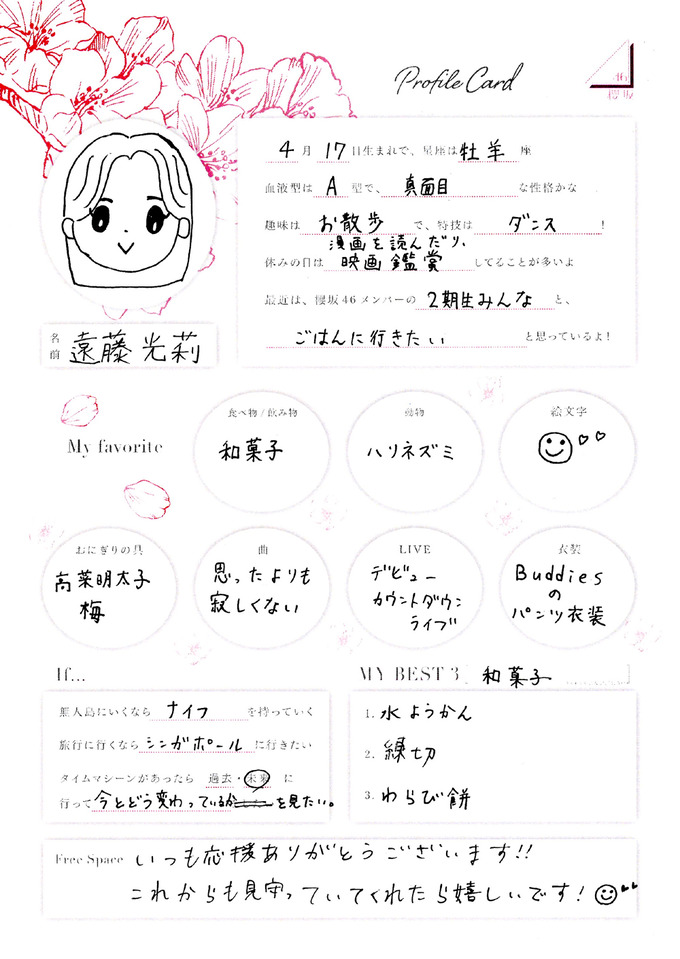 Profile Card
46
櫻坂
4月17日生まれで、星座は牡羊座
血液型はA型で、真面目な性格かな
趣味はお散歩で、特技はダンス!
漫画を読んだり、
休みの日は映画鑑賞してることが多いよ
最近は、櫻坂46メンバーの2期生みんなと、
ごはんに行きたいと思っているよ!
名前 遠藤光莉
My favorite
食べ物/飲み物
和菓子
動物
ハリネズミ
絵文字
おにぎりの具
高菜明太子
梅
曲
思ったよりも
寂しくない
LIVE
デビュー
カウントダウン
ライブ
衣装
Buddies
の
パンツ衣装
If...
無人島にいくならナイフを持っていく
旅行に行くならシンガポールに行きたい
タイムマシーンがあったら 過去・未来 に
行って今とどう変わっているかを見たい。
MY BEST 3 和菓子
1. 水ようかん
2. 練切
3. わらび餅
Free Space いつも応援ありがとうございます!!
これからも見守っていてくれたら嬉しいです!